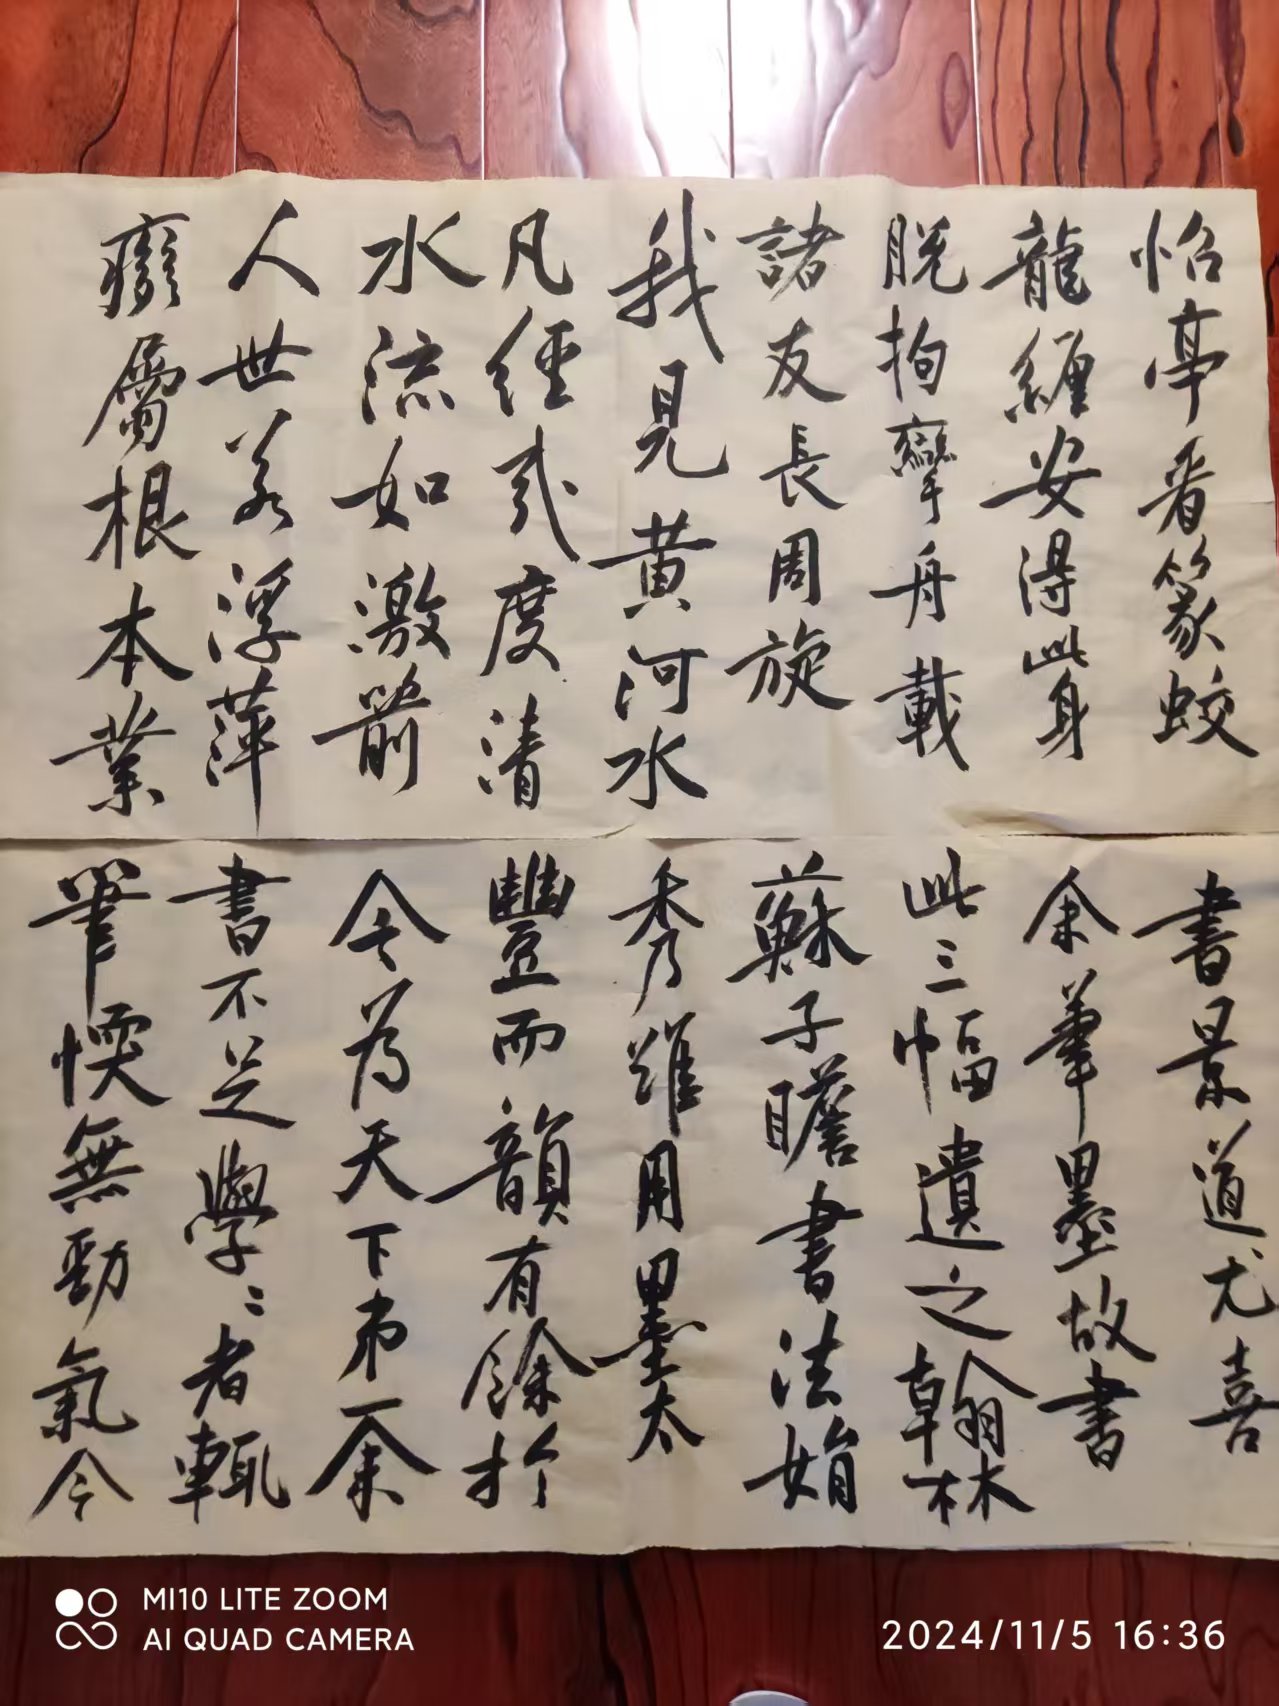 怡亭看篆蛟
龍纏安得此身
脱拘攣舟載
諸友長周旋
我見黄河水
凡經貳度清
水流如激箭
人世若浮萍
癡屬根本業
書景道尤喜
余筆墨故書
此三幅遺之翰林
蘇子瞻書法娟
秀雖用墨太
豐而韻有餘於
今為天下第一余
書不足學學者輒
筆愞無勁氣今
MI10 LITE ZOOM
AI QUAD CAMERA
2024/11/5 16:36